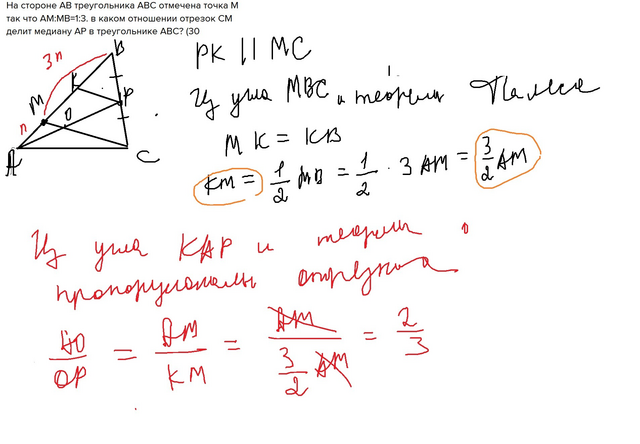 На стороне АВ треугольника АВС отмечена точка М
так что АМ:МВ=1:3. в каком отношении отрезок СМ
делит медиану АР в треугольнике АВС? (30
3n
B
K
M
P
n
O
A
C
PK || MC
Из угла MBC и теоремы Фалеса
MK = KB
KM = 1/2 MB = 1/2 · 3 AM = 3/2 AM
Из угла KAP и теоремы о
пропорциональных отрезках
AO/OP = AM/KM = AM/(3/2 AM) = 2/3